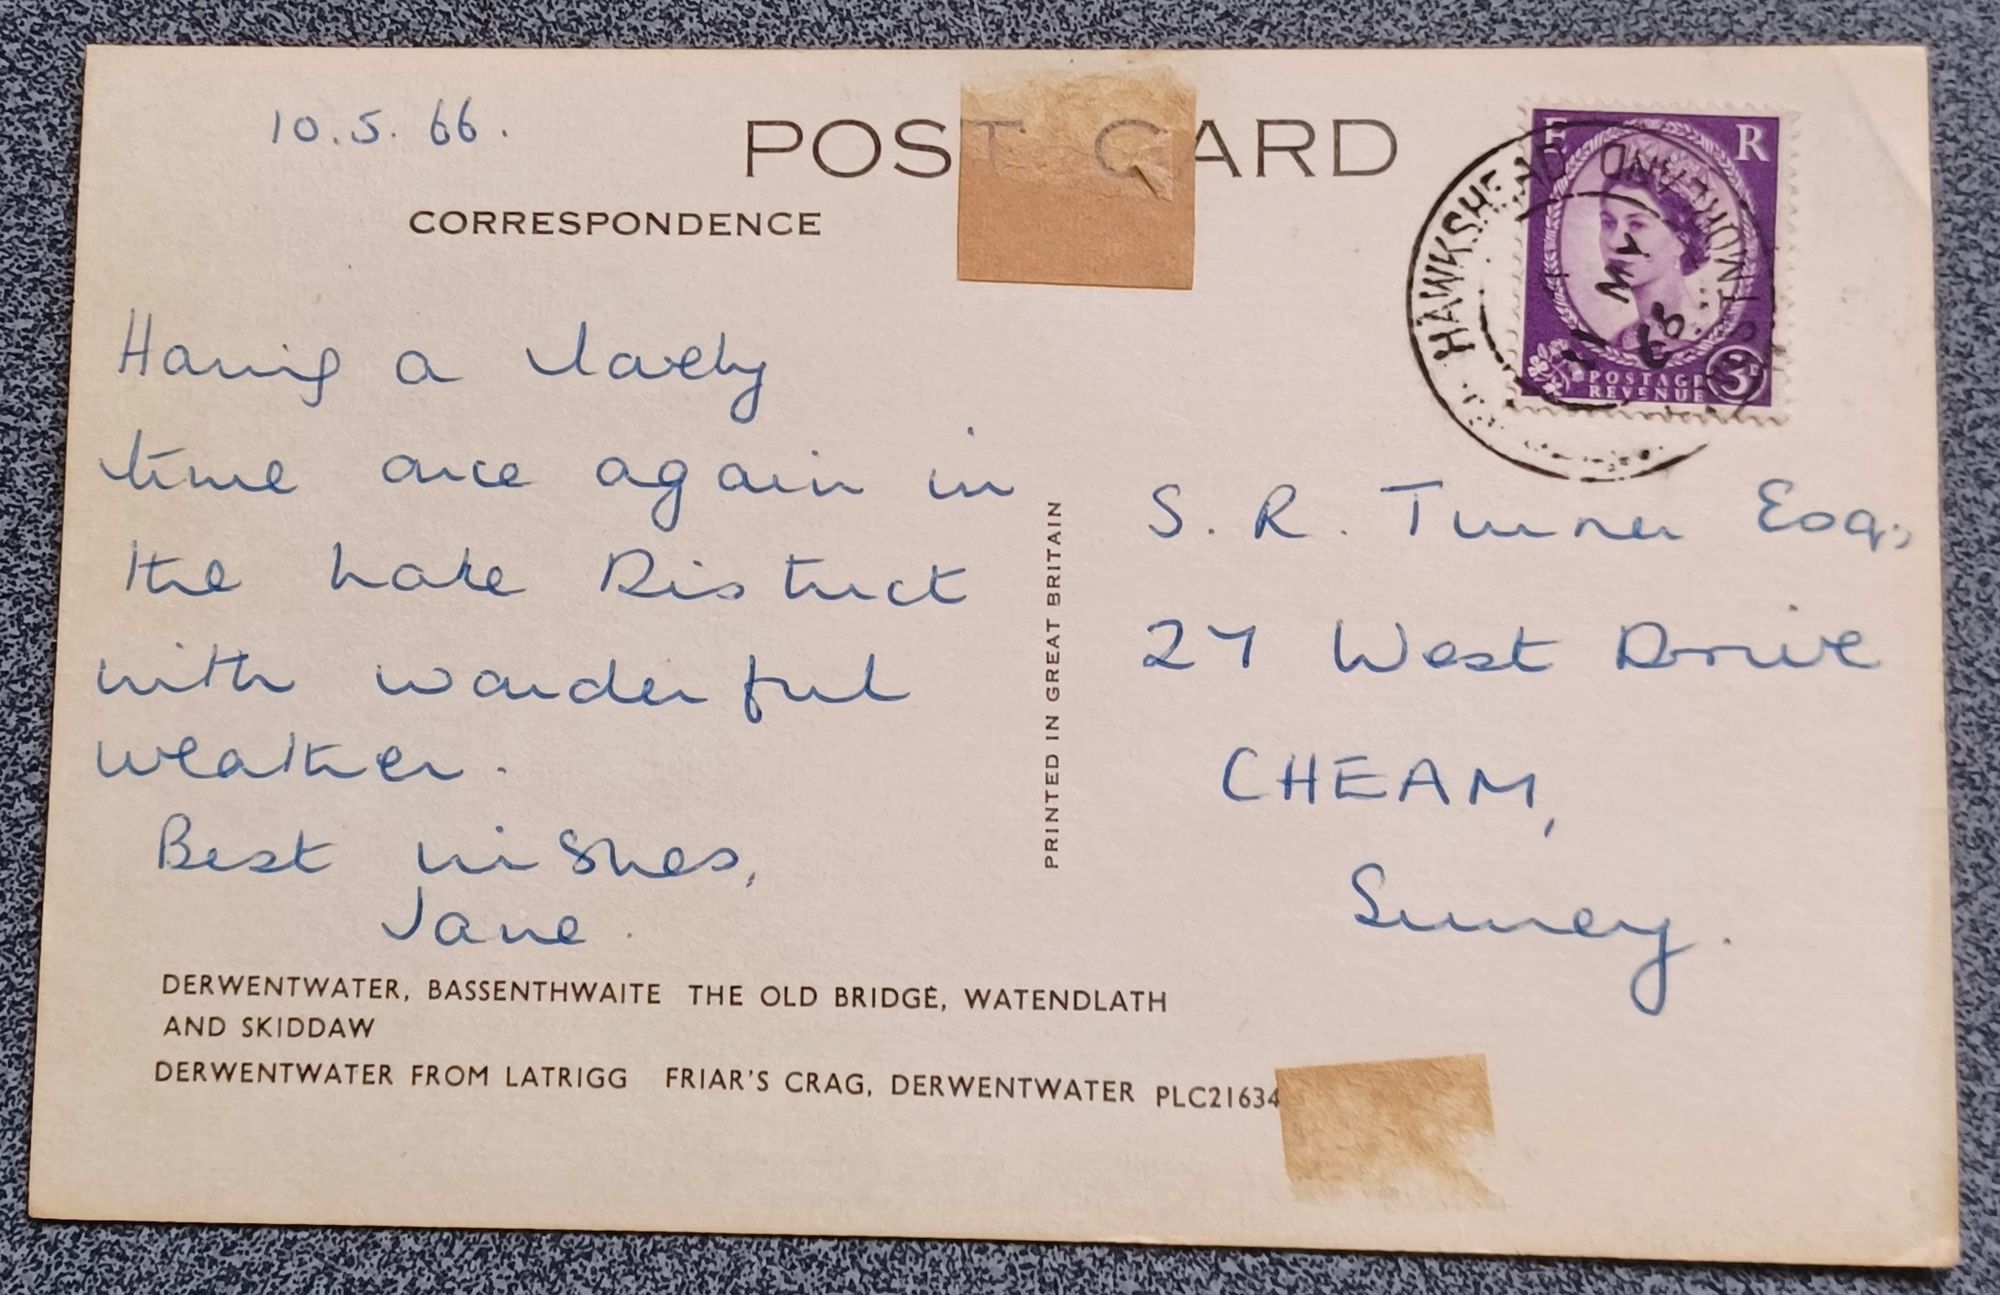 10.5.66.
POST CARD
CORRESPONDENCE
Having a lovely
time once again in
the Lake District
with wonderful
weather.
Best wishes,
Jane.
DERWENTWATER, BASSENTHWAITE THE OLD BRIDGE, WATENDLATH
AND SKIDDAW
DERWENTWATER FROM LATRIGG FRIAR'S CRAG, DERWENTWATER PLC21634
PRINTED IN GREAT BRITAIN
E R
POSTAGE
REVENUE
3D
HAWKSHEAD
MY
66
S. R. Turner Esq.,
27 West Drive
CHEAM,
Surrey.